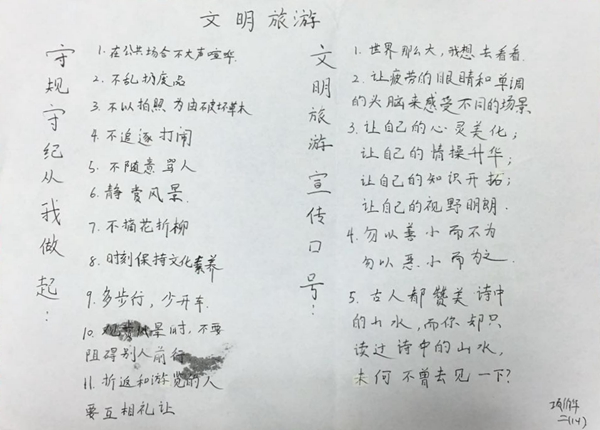 文明旅游
守规守纪从我做起:
1.在公共场合不大声喧哗.
2.不乱扔废品
3.不以拍照为由破坏草木
4.不追逐打闹
5.不随意骂人
6.静赏风景.
7.不摘花折柳
8.时刻保持文化素养
9.多步行,少开车.
10.风景时,不要
阻碍别人前行
11.折返和游览的人
要互相礼让
文明旅游宣传口号:
1.世界那么大,我想去看看.
2.让疲劳的眼睛和单调
的头脑来感受不同的场景
3.让自己的心灵美化;
让自己的情操升华;
让自己的知识开拓;
让自己的视野明朗.
4.勿以善小而不为
勿以恶小而为之.
5.古人都赞美诗中
的山水,而你却只
读过诗中的山水,
未何不曾去见一下?
二(14)